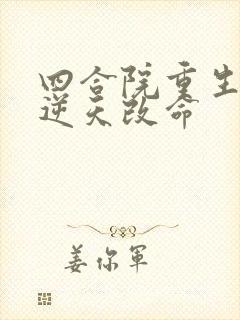 四合院重生
逆天改命
姜你军